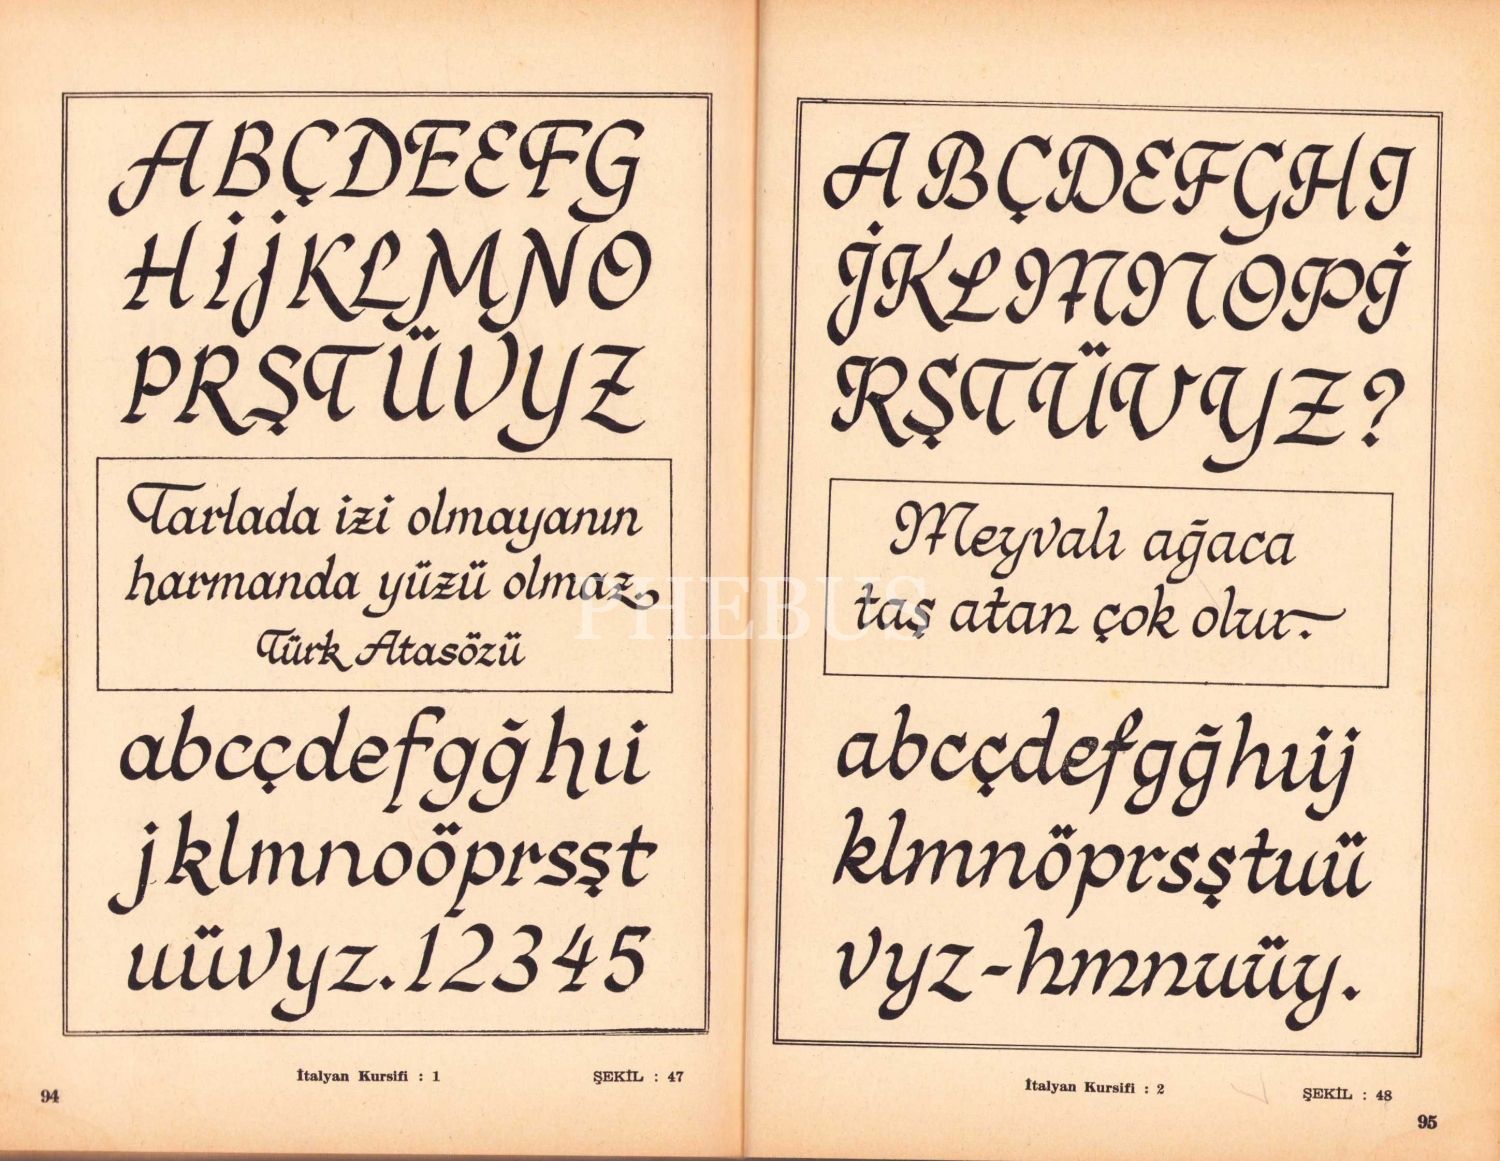 ABÇDEEFG
HİJKLMNO
PRŞTÜVYZ
Tarlada izi olmayanın
harmanda yüzü olmaz
Türk Atasözü
abcçdefgğhıi
jklmnoöprsşt
uüvyz.12345
İtalyan Kursifi : 1
ŞEKİL : 47
94
ABÇDEFGHI
JKLMNOPİ
RŞTÜVYZ?
Meyvalı ağaca
taş atan çok olur.
abcçdefgğhıij
klmnöprsştuü
vyz-hmnuüy.
İtalyan Kursifi : 2
ŞEKİL : 48
95
PHEBUS